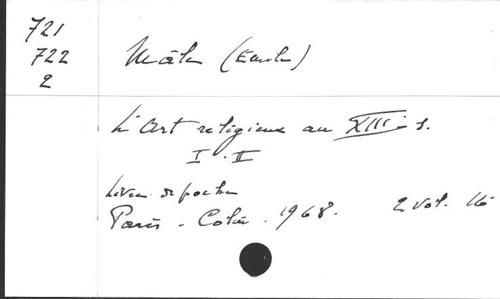 721
722
2
Mâle (Emile)
L'Art religieux au XIII s.
I. II
Livre de poche
Paris - Colin - 1968. 2 vol. 16